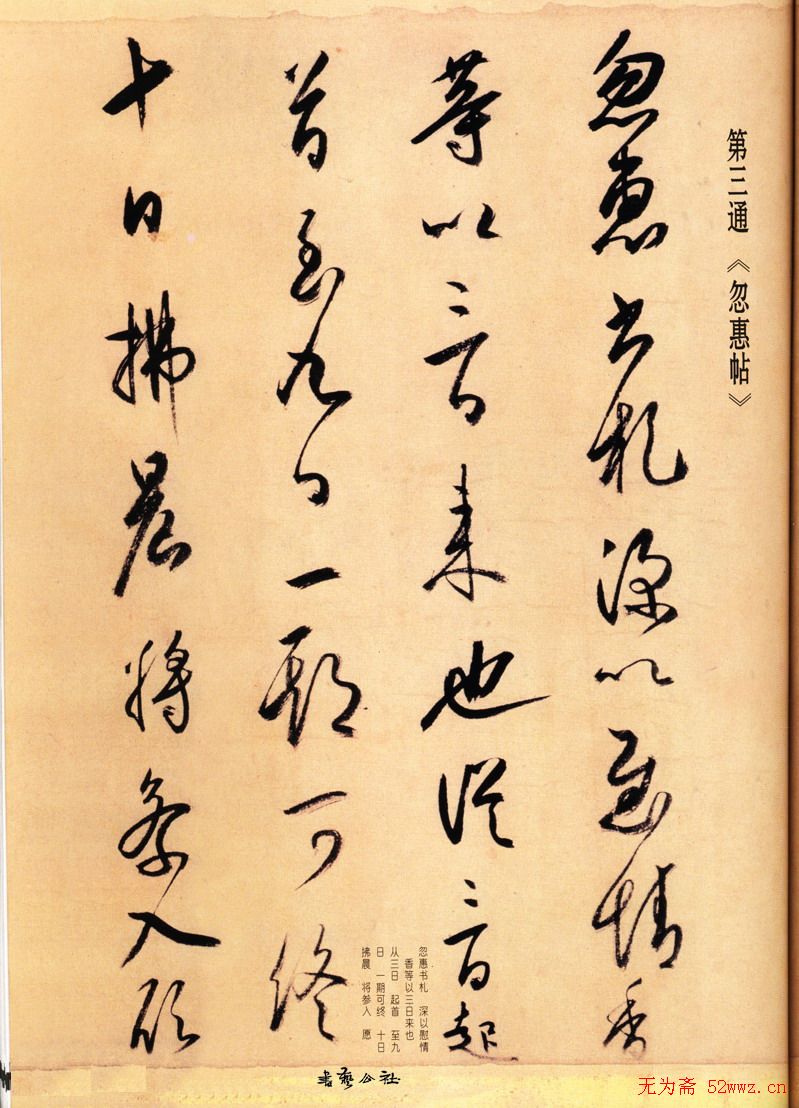 第三通《忽惠帖》
忽惠書札深以慰情香
等以三日来也從三日起
首至九日一期可終
十日拂晨將參入願
忽惠书札 深以慰情
香等以三日来也
从三日 起首 至九
日 一期可终 十日
拂晨 将参入 愿
書藝公社
无为斋 52wwz.cn